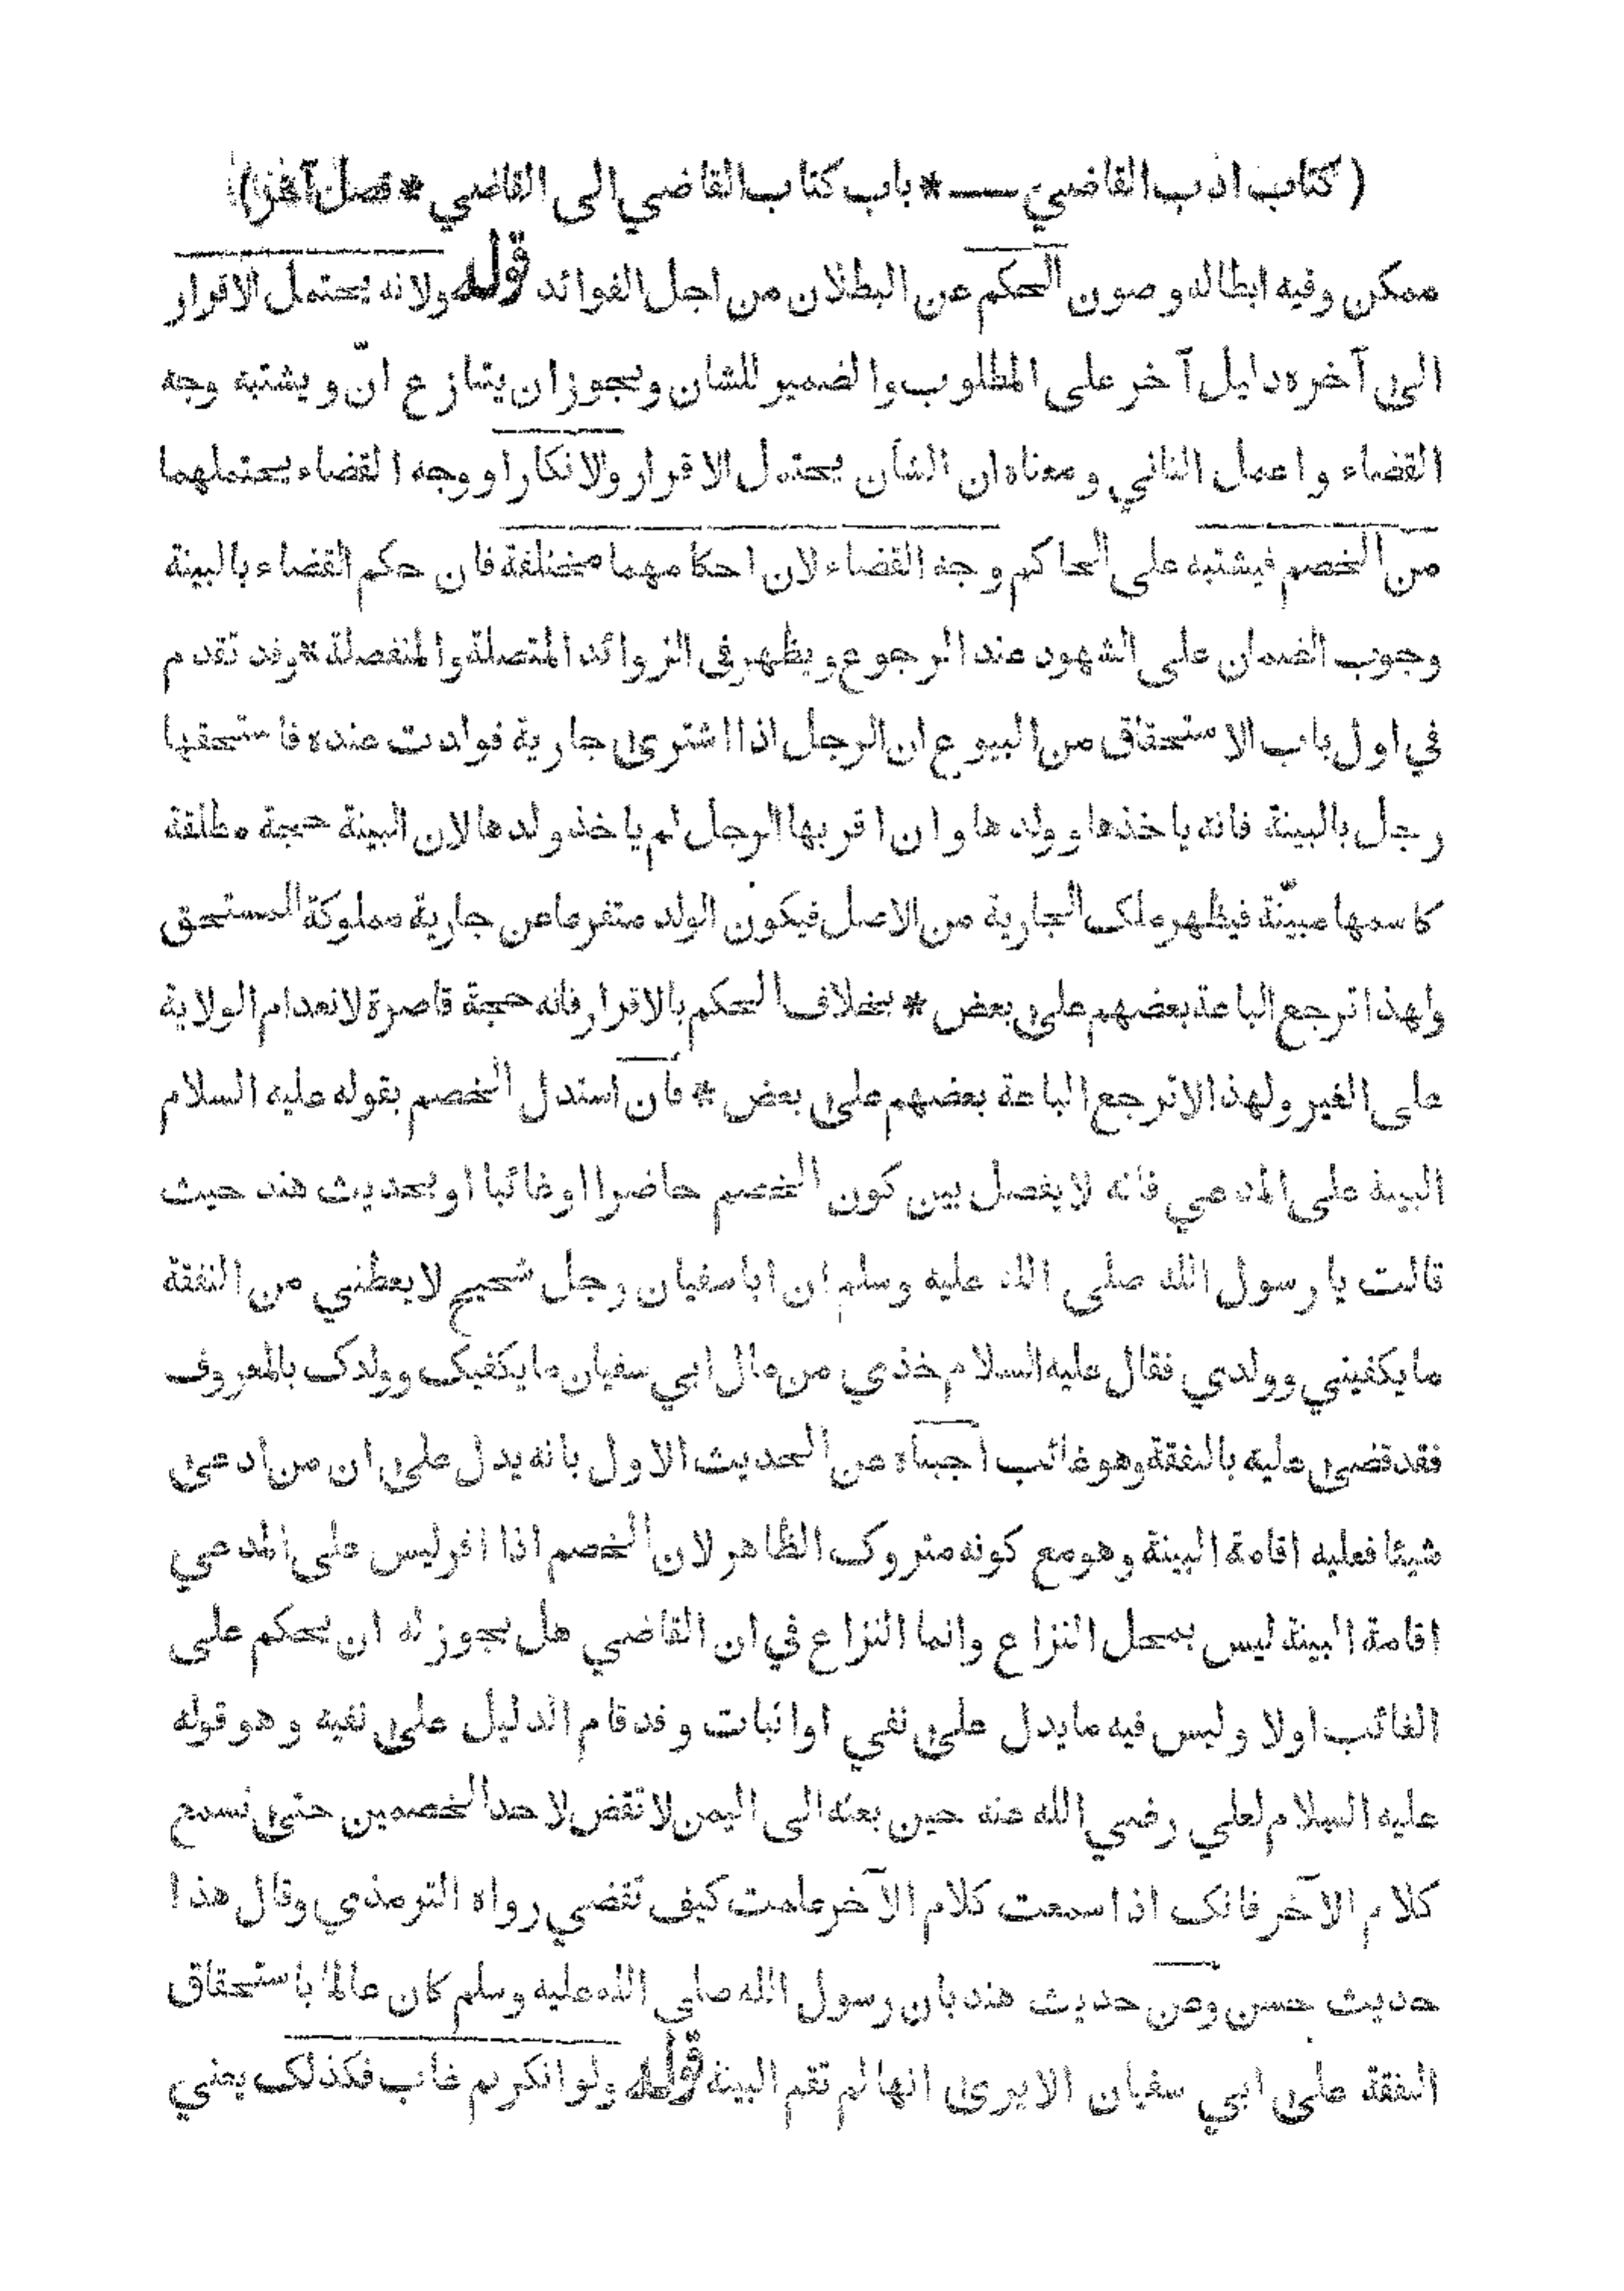 ( كتاب ادب القاضي — * باب كتاب القاضي الى القاضي * فصل آخر )
ممكن وفيه ابطاله وصون الحكم عن البطلان من اجل الفوائد قوله ولانه يحتمل الاقرار
الى آخره دليل آخر على المطلوب والضمير للشان ويجوز ان يتنازع انّ ويشتبه وجه
القضاء واعمل الثاني ومعناه ان الشان يحتمل الاقرار والانكار او وجه القضاء يحتملهما
من الخصم فيشتبه على الحاكم وجه القضاء لان احكامهما مختلفة فان حكم القضاء بالبينة
وجوب الضمان على الشهود عند الرجوع ويظهر فى الزوائد المتصلة والمنفصلة * وقد تقدم
في اول باب الاستحقاق من البيوع ان الرجل اذا اشترى جارية فولدت عنده فاستحقها
رجل بالبينة فانه ياخذها وولدها وان اقر بها الرجل لم ياخذ ولدها لان البينة حجة مطلقة
كاسمها مبيّنة فيظهر ملك الجارية من الاصل فيكون الولد متفرعا عن جارية مملوكة للمستحق
ولهذا ترجع الباعة بعضهم على بعض * بخلاف الحكم بالاقرار فانه حجة قاصرة لانعدام الولاية
على الغير ولهذا لا ترجع الباعة بعضهم على بعض * فان استدل الخصم بقوله عليه السلام
البينة على المدعي فانه لا يفصل بين كون الخصم حاضرا او غائبا او بحديث هند حيث
قالت يا رسول الله صلى الله عليه وسلم ان ابا سفيان رجل شحيح لا يعطني من النفقة
ما يكفيني وولدي فقال عليه السلام خذي من مال ابي سفيان ما يكفيك وولدك بالمعروف
فقد قضى عليه بالنفقة وهو غائب اجبناه عن الحديث الاول بانه يدل على ان من ادعى
شيئا فعليه اقامة البينة وهو مع كونه متروك الظاهر لان الخصم اذا اقر ليس على المدعي
اقامة البينة ليس بمحل النزاع وانما النزاع في ان القاضي هل يجوز له ان يحكم على
الغائب اولا وليس فيه ما يدل على نفي او اثبات وقد قام الدليل على نفيه وهو قوله
عليه السلام لعلي رضي الله عنه حين بعثه الى اليمن لا تقض لاحد الخصمين حتى تسمع
كلام الآخر فانك اذا سمعت كلام الآخر علمت كيف تقضي رواه الترمذي وقال هذا
حديث حسن وعن حديث هند بان رسول الله صلى الله عليه وسلم كان عالما باستحقاق
النفقة على ابي سفيان الا يرى انها لم تقم البينة قوله ولو انكر ثم غاب فكذلك يعني